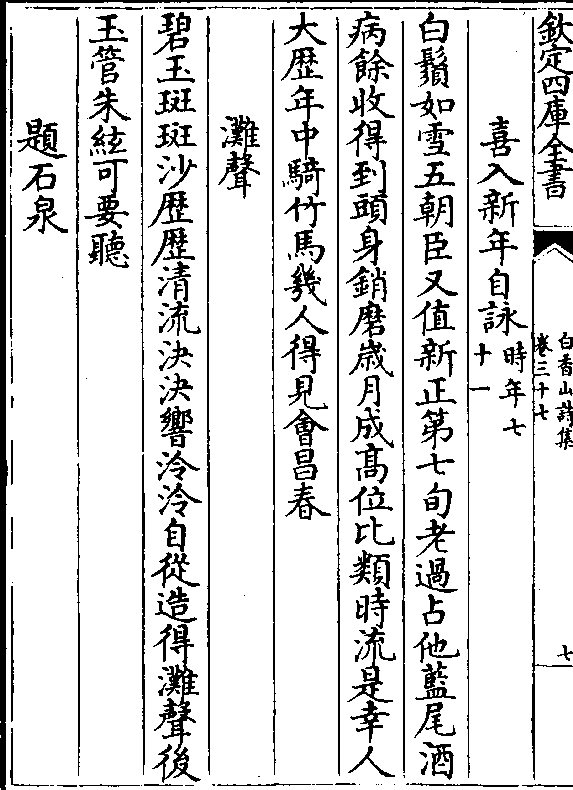 欽定四庫全書
白香山詩集
卷三十七
七
喜入新年自詠時年七十一
白鬚如雪五朝臣又值新正第七旬老過占他藍尾酒
病餘收得到頭身銷磨嵗月成髙位比類時流是幸人
大歴年中騎竹馬幾人得見會昌春
灘聲
碧玉斑斑沙歴歴清流決決響泠泠自從造得灘聲後
玉管朱絃可要聽
題石泉